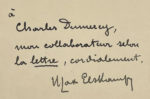 à
Charles Dumercy,
mon collaborateur selon
la lettre, cordialement.
Max Elskamp